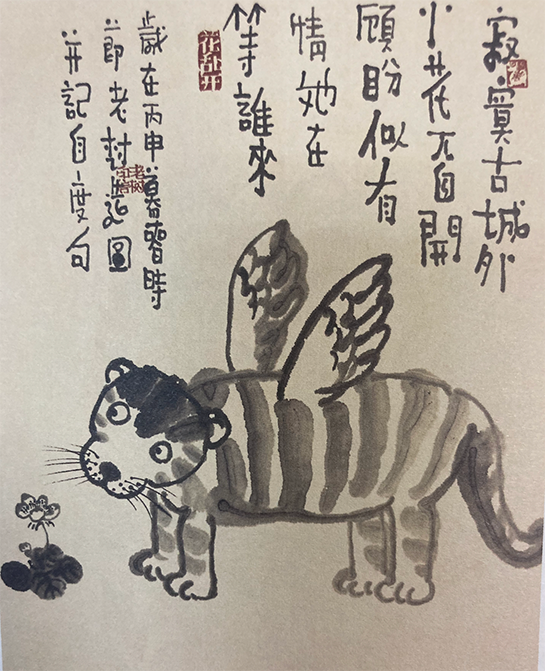 寂寞古城外
小花兀自開
顧盼似有
情她在
等誰來
花乱开
歲在丙申暮春時
節老樹造圖
并記自度句